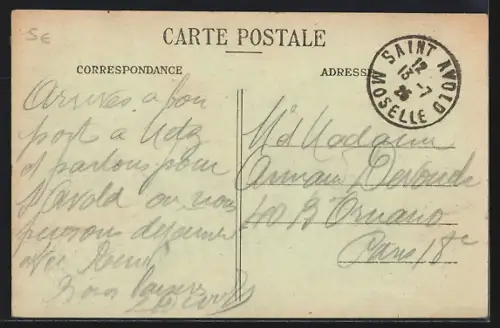 5E
CARTE POSTALE
CORRESPONDANCE
ADRESSE
SAINT AVOLD
12
13 -7
26
MOSELLE
Arrivés a bon
port a Metz
et partons pour
St Avold ou nous
pensons déjeuner
avec
Bons baisers
Md Madame
Armand
40 Bd Ornano
Paris 18e